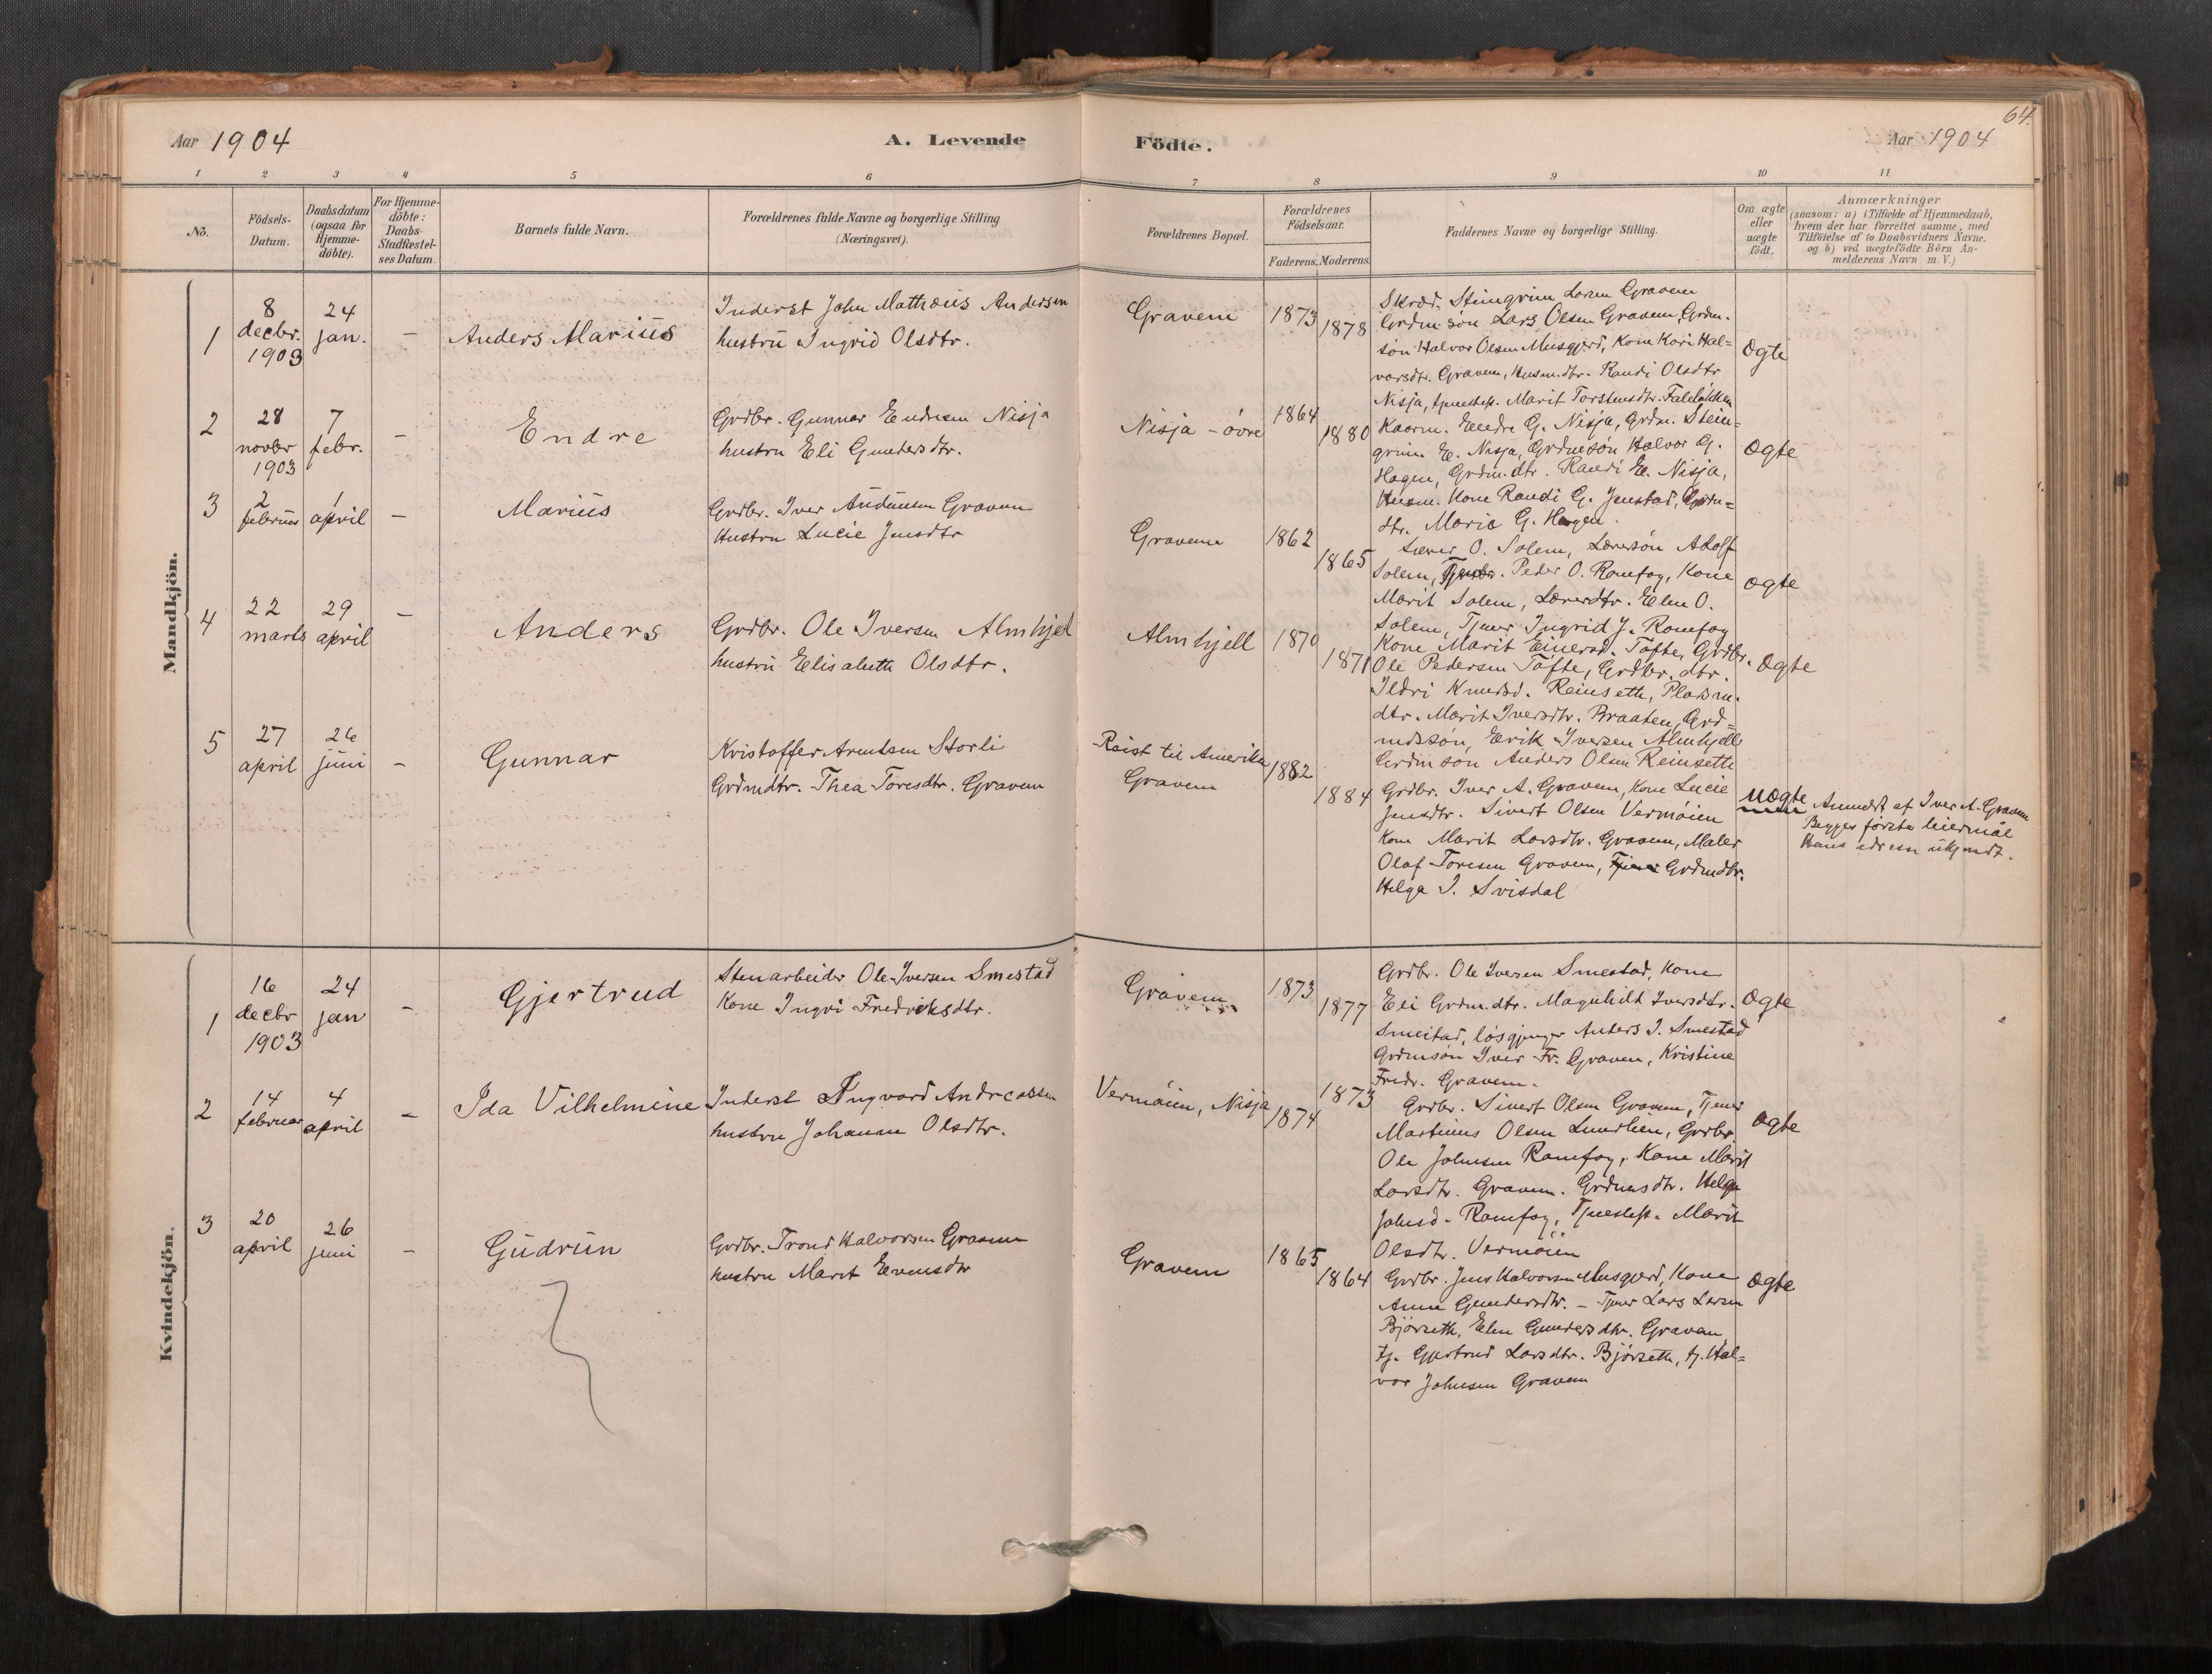 64.
Aar 1904
A. Levende
Födte.
Aar 1904
1 2 3 4 5 6 7 8 9 10 11
No.
Födsels-Datum.
Daabsdatum (ogsaa for Hjemme-döbte).
For Hjemme-döbte: Daabs-Stadfæstel-ses Datum.
Barnets fulde Navn.
Forældrenes fulde Navne og borgerlige Stilling
(Næringsvei).
Forældrenes Bopæl.
Forældrenes Födselsaar.
Faderens. Moderens.
Faddernes Navne og borgerlige Stilling.
Om ægte eller uægte födt.
Anmærkninger
(saasom: a) i Tilfælde af Hjemmedaab,
hvem der har forrettet samme, med
Tilföielse af to Daabsvidners Navne.
og b) ved uægtefödte Börn An-
melderens Navn m. V.)
Mandkjön.
1
8 decbr. 1903
24 jan.
–
Anders Marius
Inderst John Mathæus Andersen
hustru Ingrid Olsdtr.
Gravem
1873
1878
Skræd. Steingrim Larsen Gravem
Grdm søn Lars Olsen Gravem, Grdm.
søn Halvor Olsen Musgjerd, Kone Kari Hal=
vorsdtr. Gravem, Husm.dtr. Randi Olsdtr
Nisja, tjenestep. Marit Torstensdtr. Faleløkken
Ægte
2
28 novbr 1903
7 febr.
–
Endre
Grdbr. Gunnar Endresen Nisja
hustru Eli Gundersdtr.
Nisja - øvre
1864
1880
Kaarm. Endre G. Nisja, Grdm. Stein=
grim E. Nisja, Grdmsøn Halvor G.
Hagen, Grdm.dtr. Randi E. Nisja,
Husm. Kone Randi G. Jenstad, Grdm=
dtr. Marie G. Hagen.
Ægte
3
2 februar
1 april
–
Marius
Grdbr. Iver Andersen Gravem
Hustru Lucie Jensdtr
Gravem
1862
1865
Lærer O. Solem, Lærersøn Adolf
Solem, Peder O. Romfog, Kone
Marit Solem, Lærerdtr. Elen O.
Solem, Tjener Ingrid J. Romfog
Ægte
4
22 marts
29 april
–
Anders
Grdbr. Ole Iversen Almhjel
hustru Elisabeth Olsdtr.
Almhjell
1870
1871
Kone Marit Einersd. Tøfte, Grdbr.
Ole Pedersen Tøfte, Grdbr. dtr.
Ildri Knudsd. Reinseth, Pladsm.
dtr. Marit Iversdtr. Braaten, Grd=
mdssøn, Erik Iversen Almhjell
Grdmsøn Anders Olsen Reinseth
Ægte
5
27 april
26 juni
–
Gunnar
Kristoffer Arntsen Storli
Grdmdtr. Thea Toresdtr. Gravem
Reist til Amerika
Gravem
1882
1884
Grdbr. Iver A. Gravem, Kone Lucie
Jensdtr. Sivert Olsen Vermøien
Kone Marit Larsdtr. Gravem, Maler
Olaf Toresen Gravem, Tjener Grdmdtr.
Helga I. Svisdal
Uægte
Anmeldt af Iver A. Gravem
Begges første leiermål
Hans adresse ukjendt.
Kvindekjön.
1
16 decbr 1903
24 jan
–
Gjertrud
Stenarbeider Ole Iversen Smestad
Kone Ingri Fredriksdtr.
Gravem
1873
1877
Grdbr. Ole Iversen Smestad, Kone
Eli Grdm.dtr. Magnhilt Iversdtr.
Smestad, løsgjenger Anders I. Smestad
Grdmsøn Iver Fr. Gravem, Kristine
Fredr. Gravem.
Ægte
2
14 februar
4 april
–
Ida Vilhelmine
Inderst Ingvard Andreassen
hustru Johanne Olsdtr.
Vermøien, Nisja
1874
1873
Grdbr. Sivert Olsen Gravem, Tjener
Martinus Olsen Lundlien, Grdbr.
Ole Johnsen Romfog, Kone Marit
Larsdtr. Gravem. Grdmsdtr. Helga
Johnsd. Romfog, Tjenestep. Marit
Olsdtr. Vermøien
Ægte
3
20 april
26 juni
–
Gudrun
Grdbr. Trond Halvorsen Gravem
hustru Marit Evensdtr
Gravem
1865
1864
Grdbr. Jens Halvorsen Musgjerd, Kone
Anne Gundersdtr. – Tjener Lars Larsen
Bjørseth, Elen Gundersdtr. Gravem
tj. Gjertrud Larsdtr. Bjørseth, tj. Hal=
vor Johnsen Gravem
Ægte